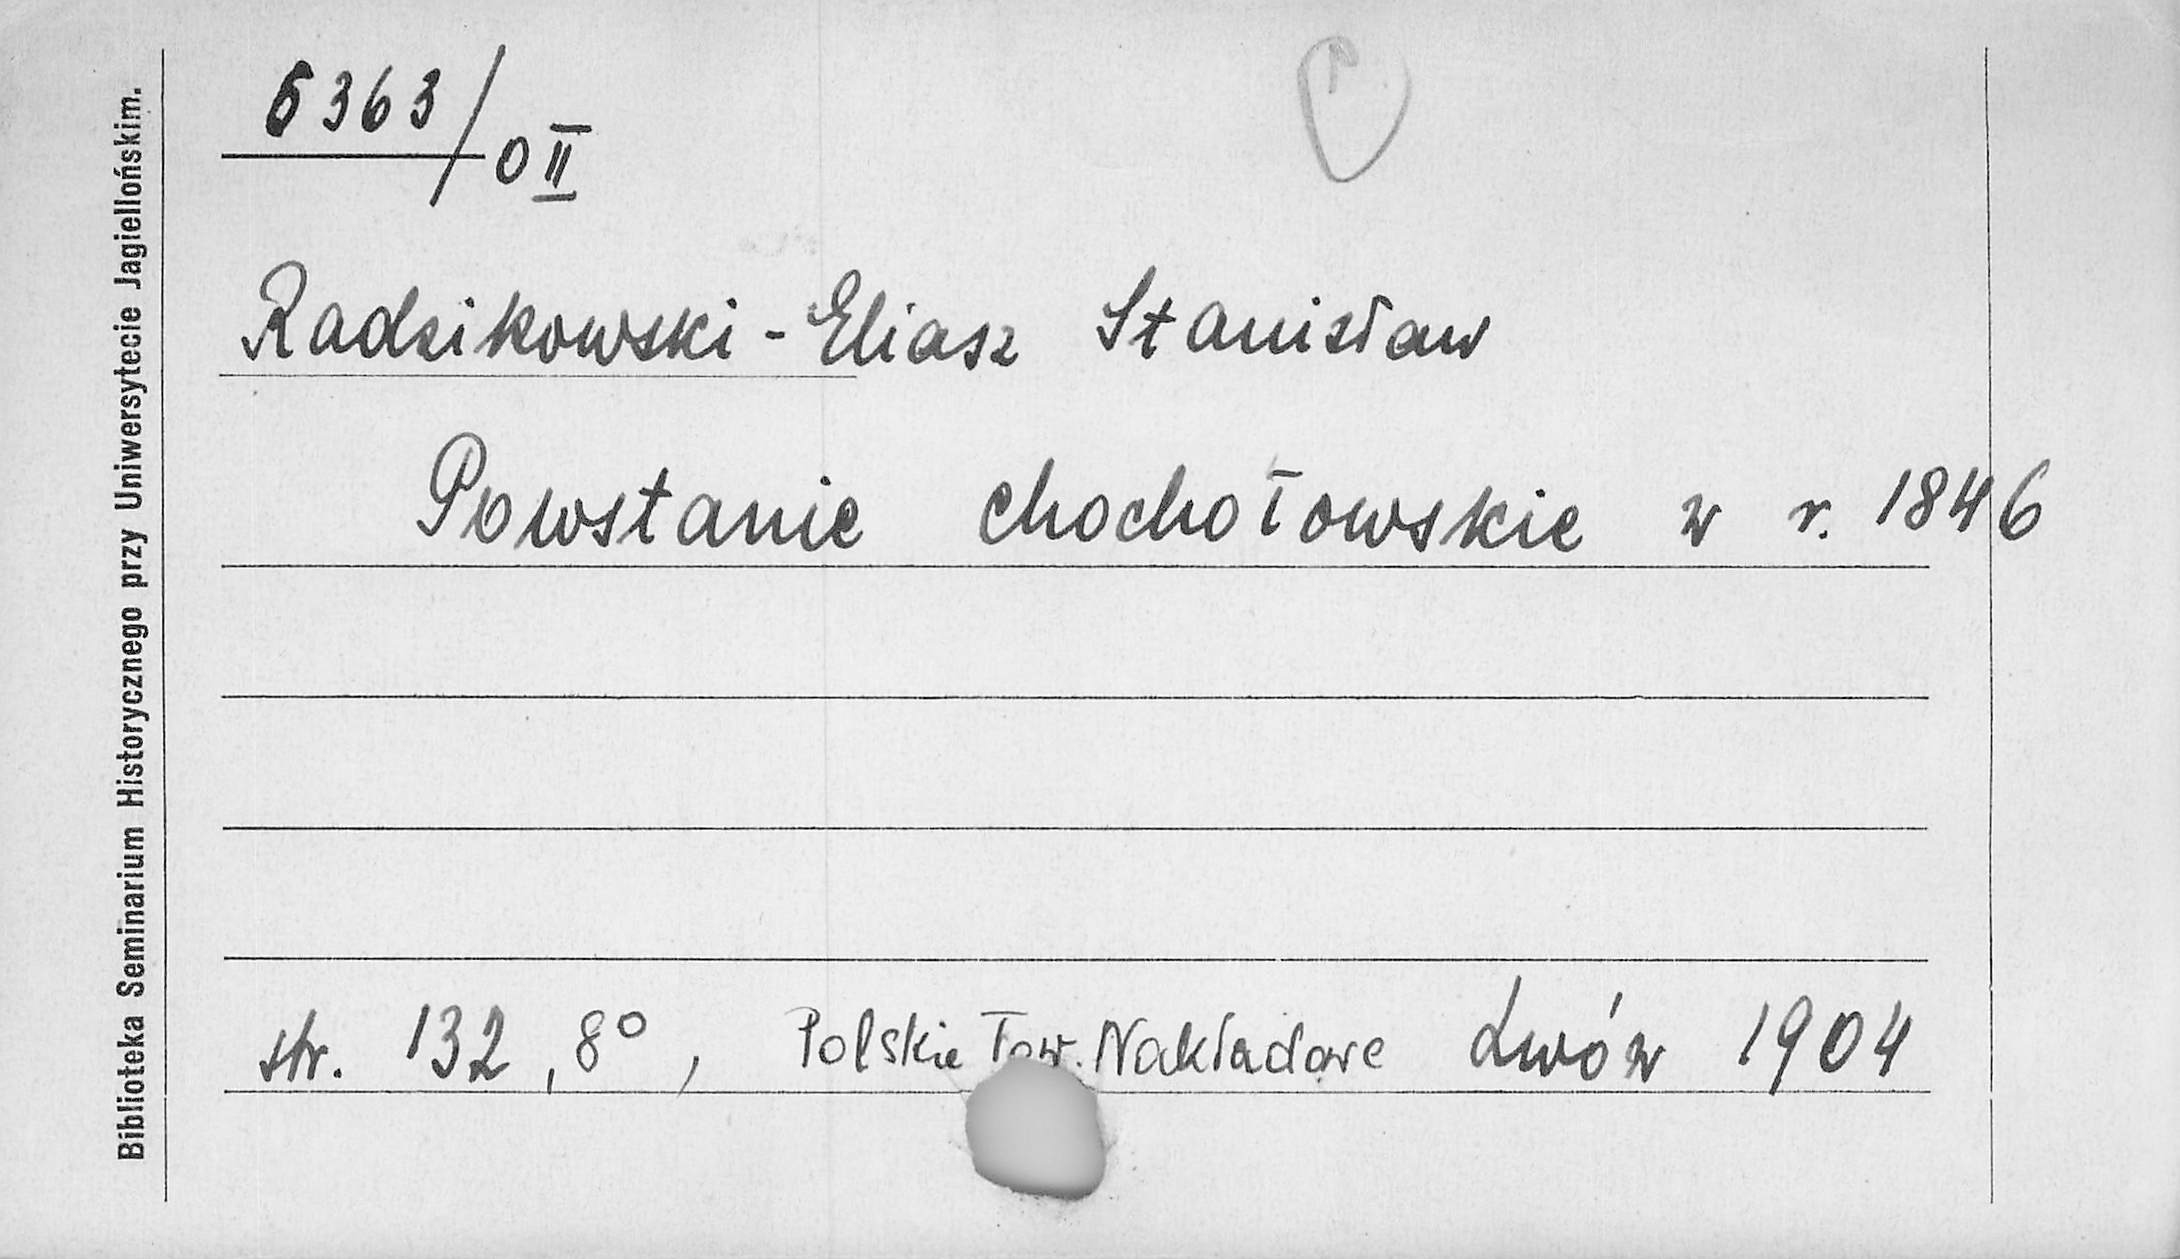 6363/OII
Radzikowski-Eliasz Stanisław
Powstanie chochołowskie w r. 1846
str. 132, 8°, Polskie Tow. Nakładowe Lwów 1904
Biblioteka Seminarium Historycznego przy Uniwersytecie Jagiellońskim.